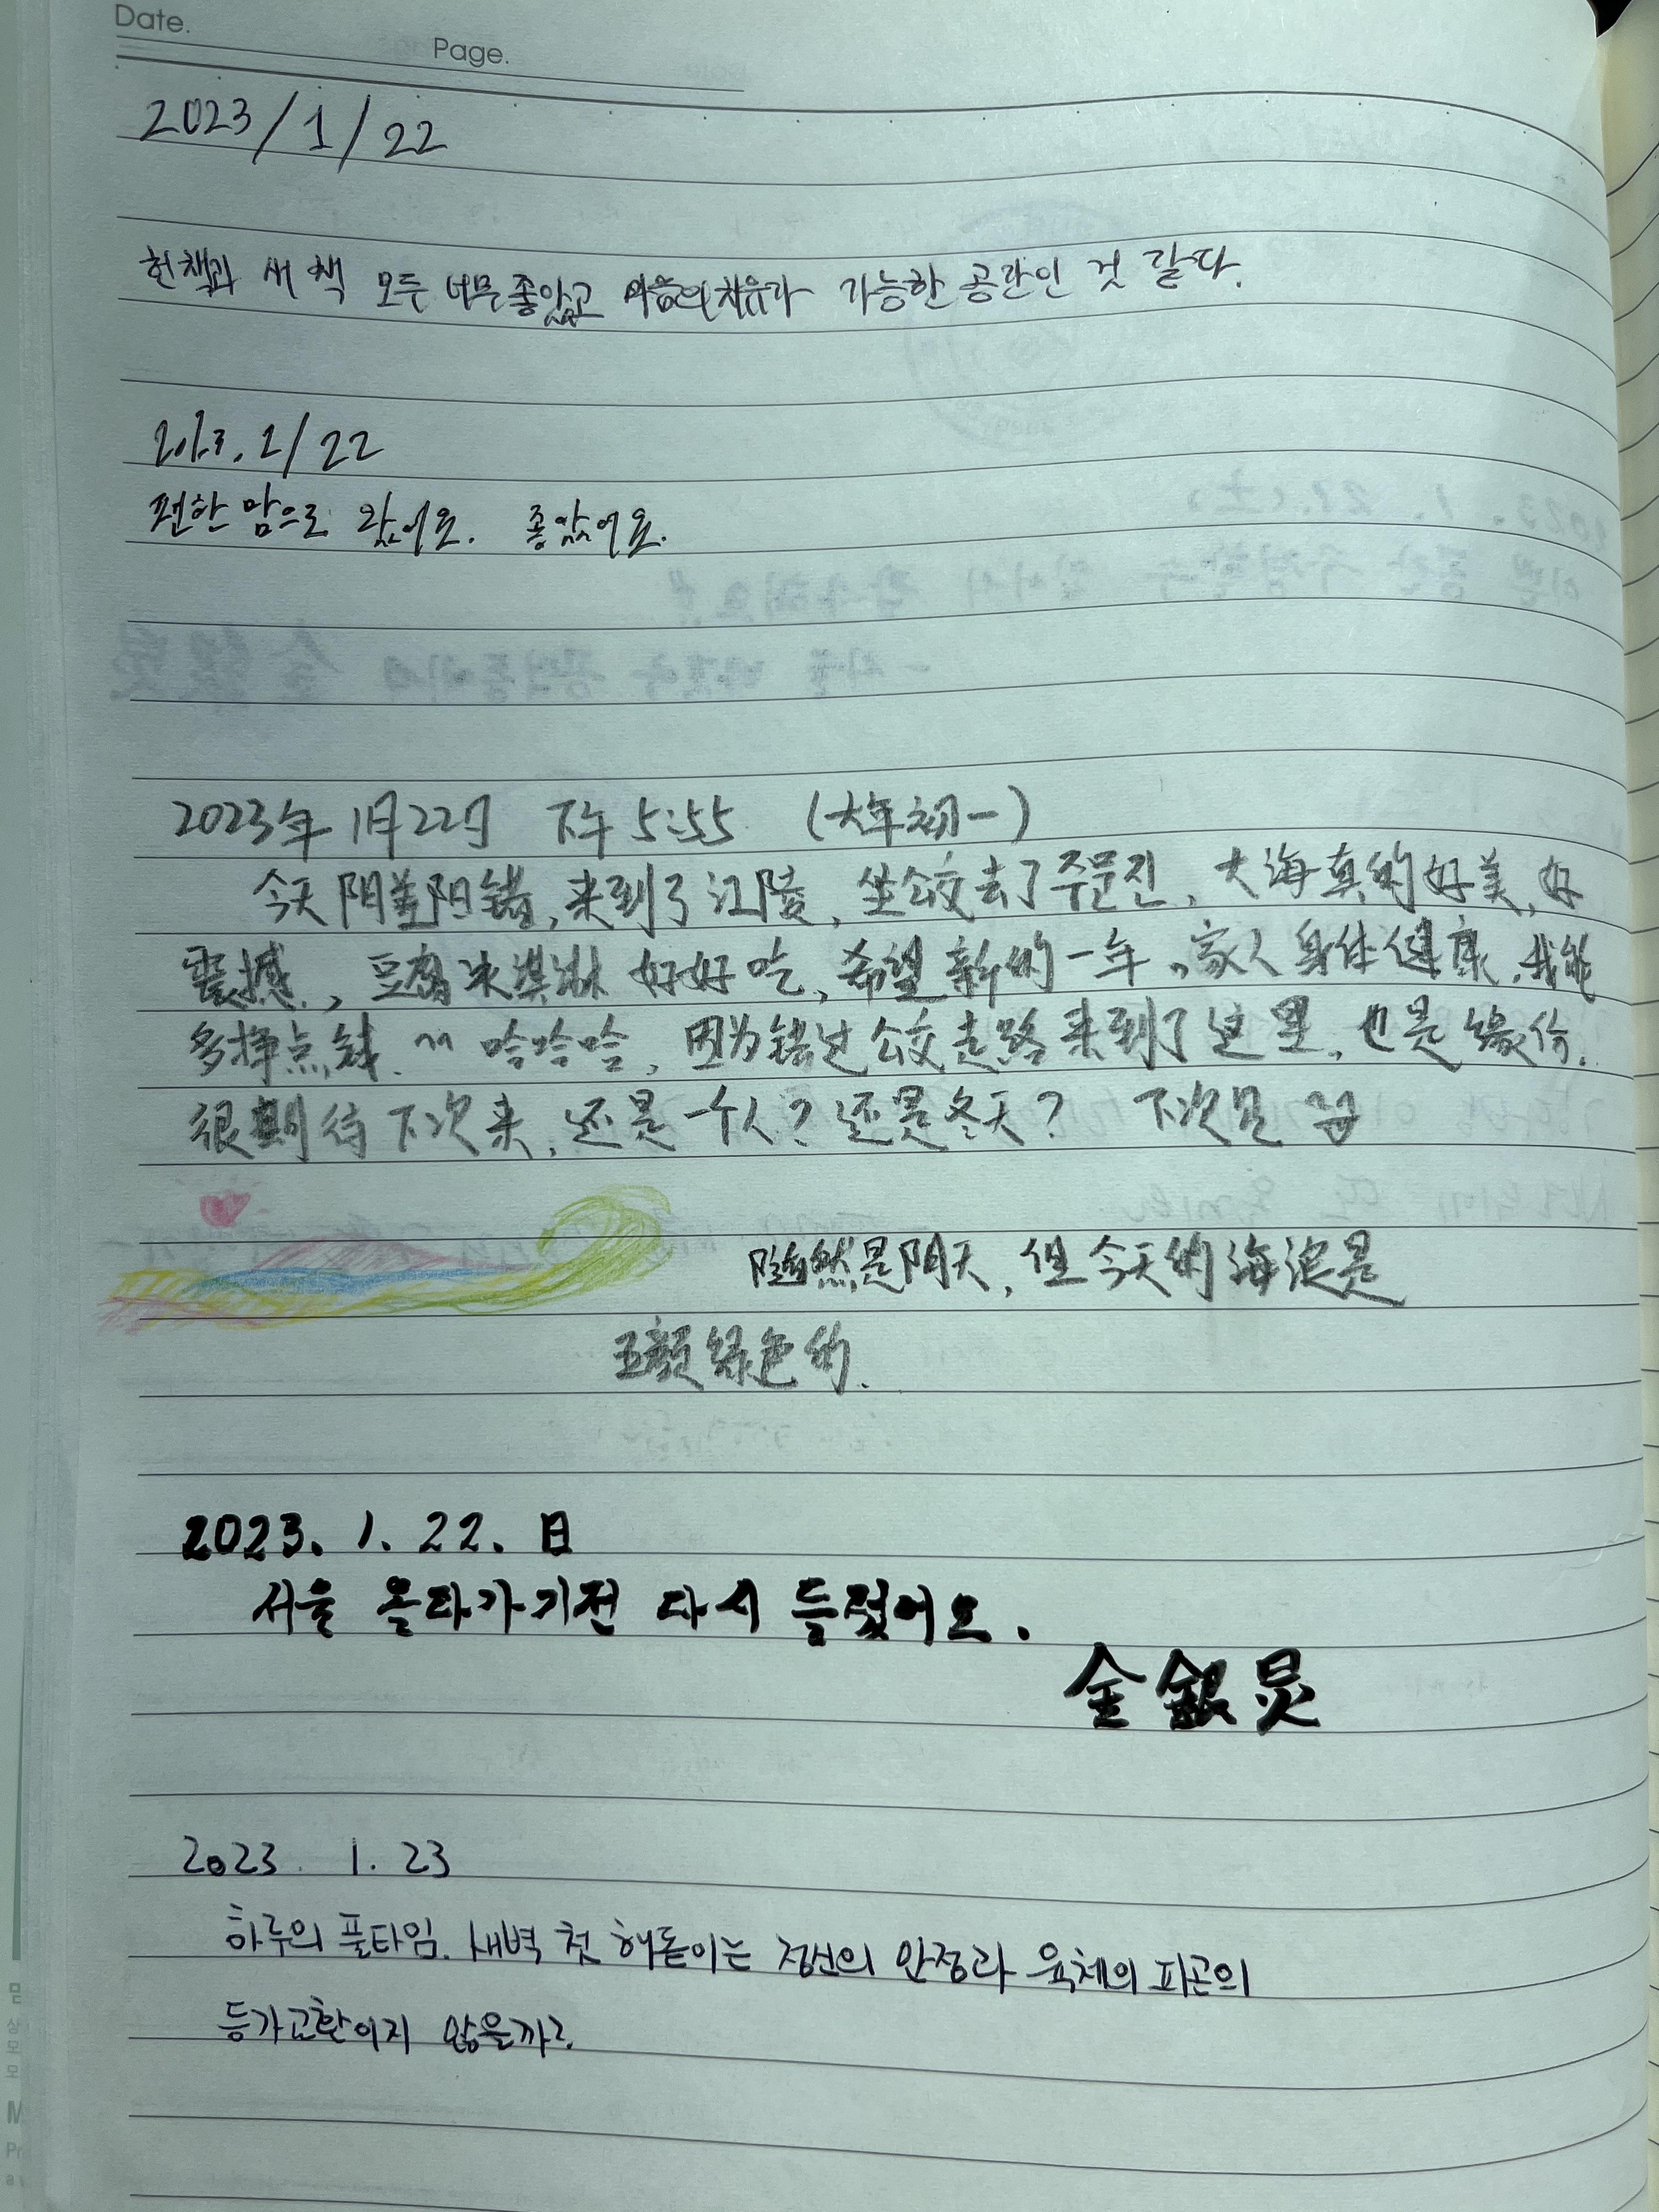 Date.
Page.
2023/1/22
헌책과 새 책 모두 너무 좋았고 마음의 치유가 가능한 공간인 것 같다.
2023. 1/22
편한 맘으로 왔어요. 좋았어요.
2023年 1月22日 下午 5:55 (大年初一)
今天阴差阳错,来到了江陵,坐公交去了주문진,大海真的好美,好
震撼.,豆腐冰淇淋 好好吃,希望新的一年,家人身体健康,我能
多挣点钱.^^ 哈哈哈,因为错过公交走路来到了这里,也是缘份.
很期待下次来,还是一个人?还是冬天? 下次见
虽然是阴天,但今天的海浪是
五颜绿色的.
2023. 1. 22. 日
서울 올라가기전 다시 들렀어요.
金銀炅
2023. 1. 23
하루의 풀타임. 새벽 첫 해돋이는 정신의 안정과 육체의 피곤의
등가교환이지 않을까?